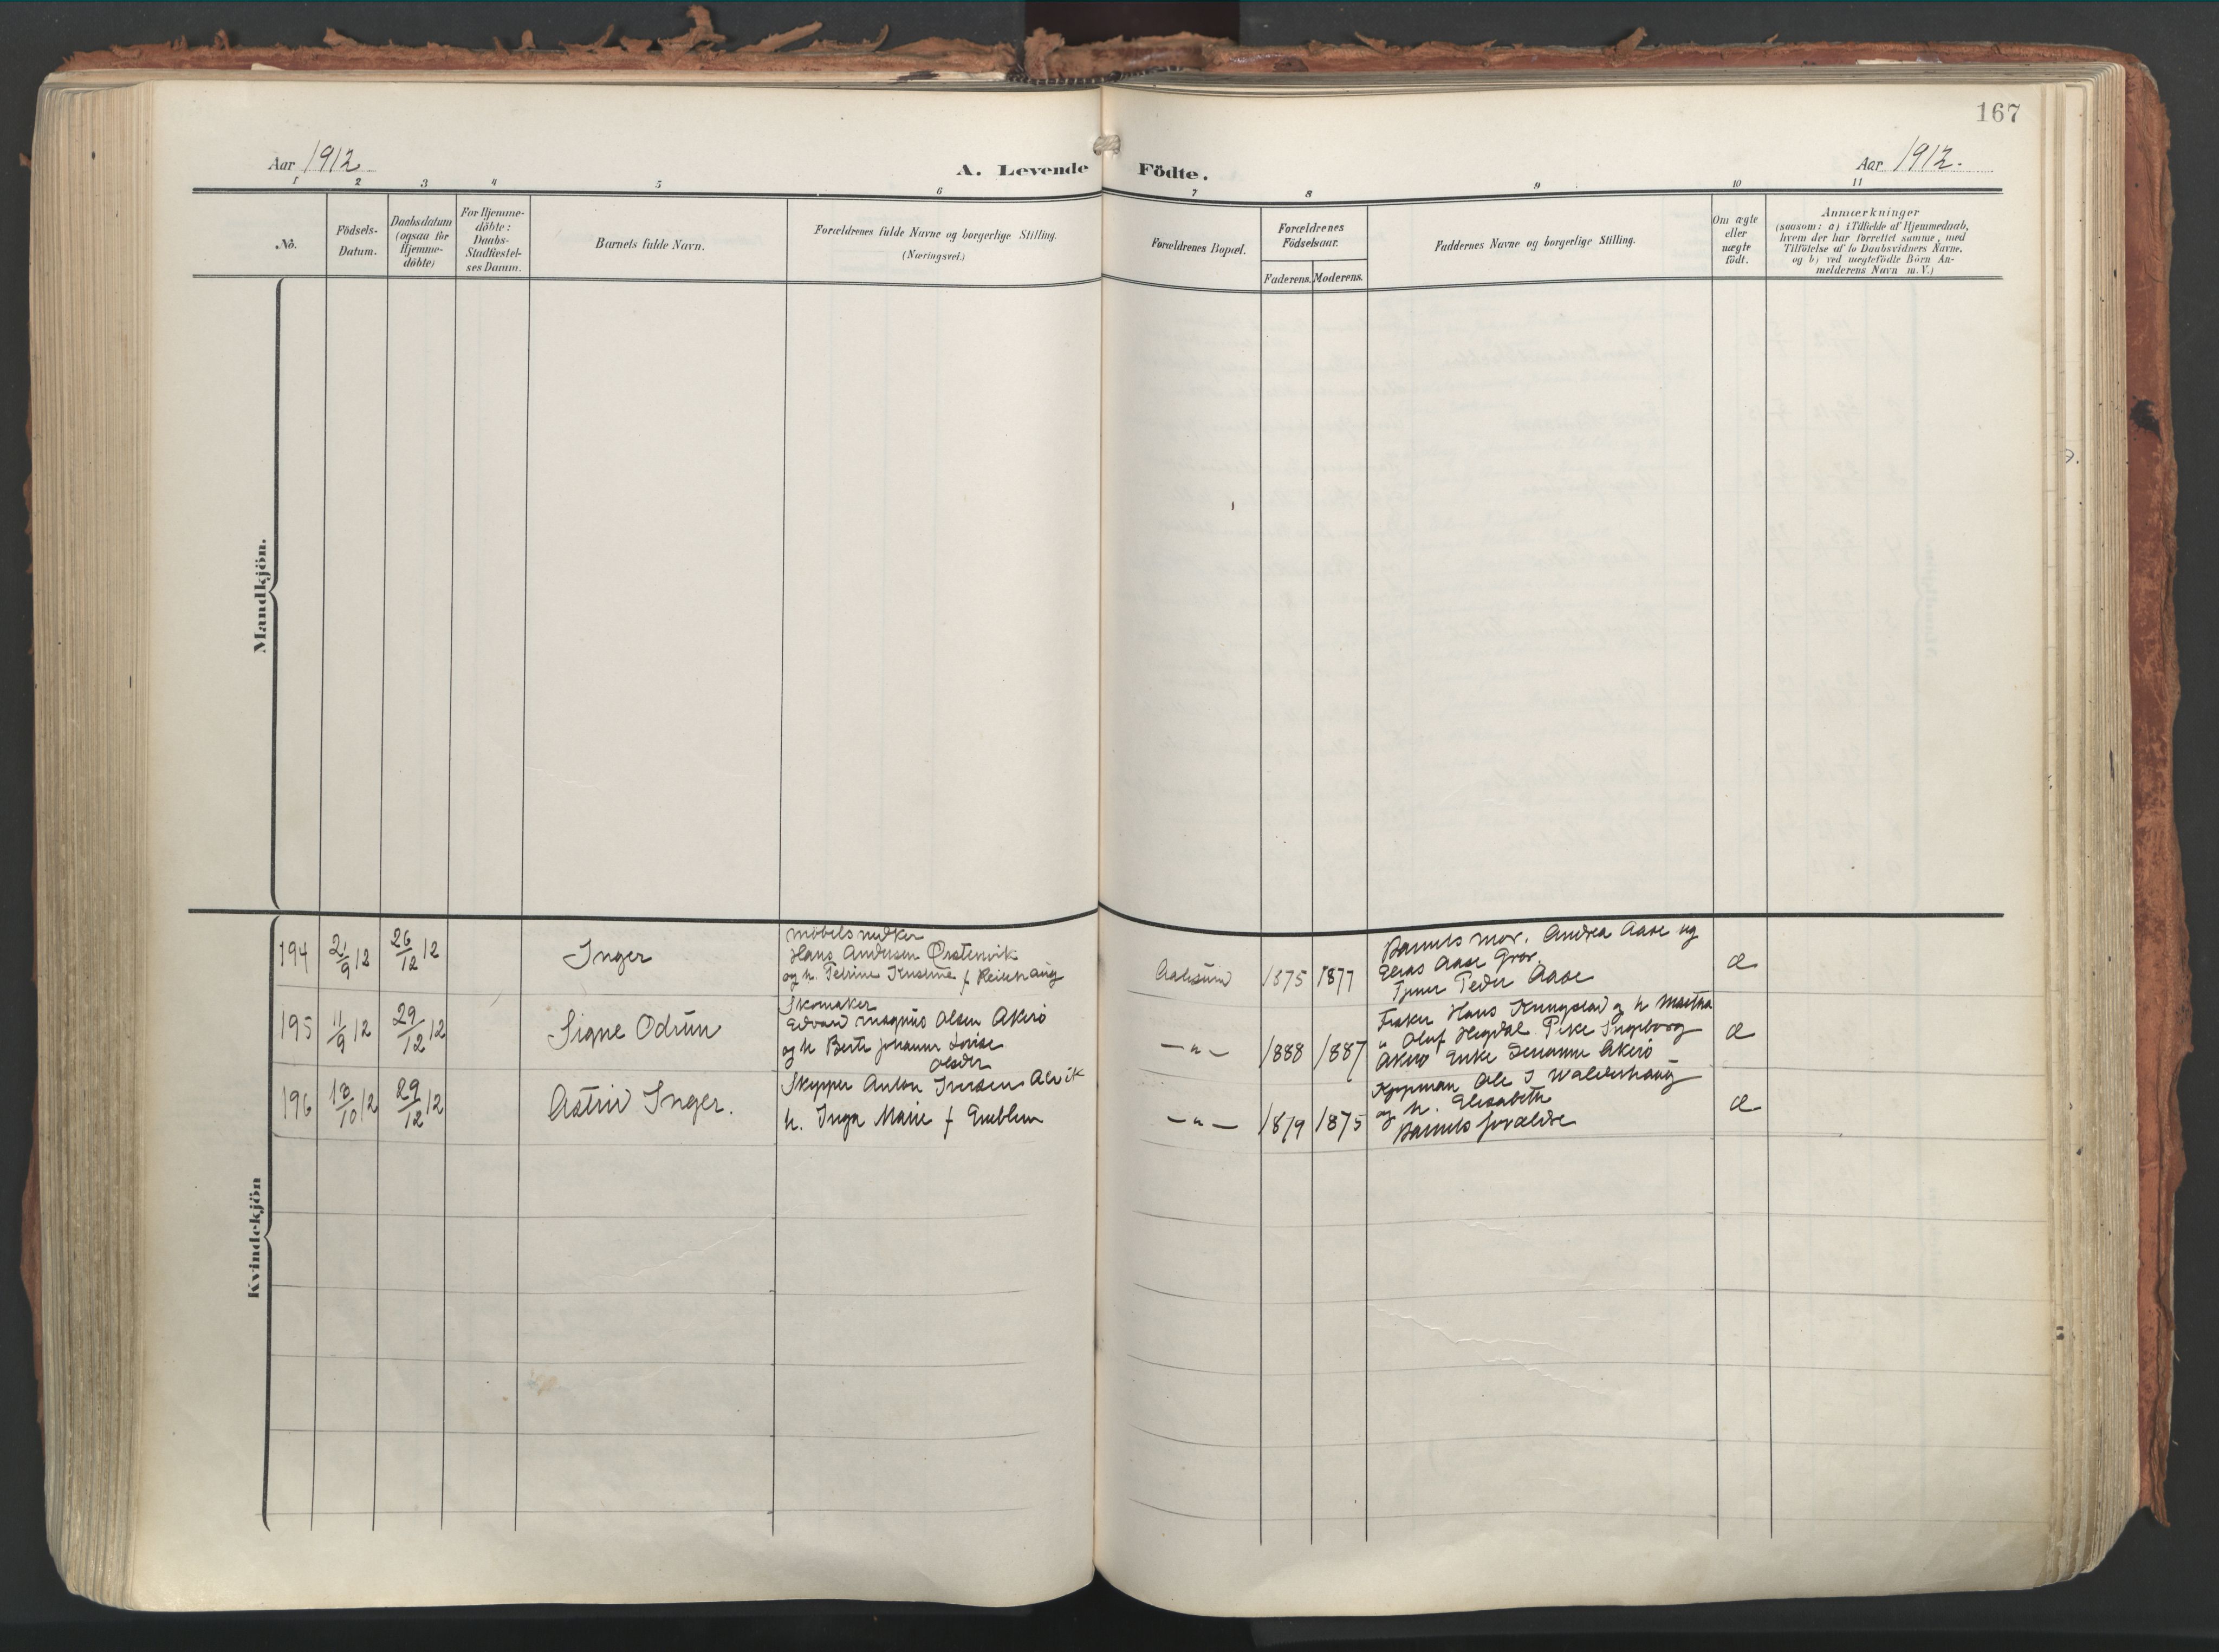 167
Aar 1912
A. Levende Födte.
Aar 1912.
1 2 3 4 5 6 7 8 9 10 11
No.
Födsels-
Datum.
Daabsdatum
(ogsaa for
Hjemme-
döbte)
For Hjemme-
döbte:
Daabs-
Stadfæstel-
ses Datum.
Barnets fulde Navn.
Forældrenes fulde Navne og borgerlige Stilling.
(Næringsvei.)
Forældrenes Bopæl.
Forældrenes
Födselsaar.
Faderens. Moderens.
Faddernes Navne og borgerlige Stilling.
Om ægte
eller
uægte
födt.
Anmærkninger
(saasom: a) i Tilfælde af Hjemmedaab,
hvem der har forrettet samme, med
Tilföielse af to Daabsvidners Navne,
og b) ved uægtefödte Börn An-
melderens Navn m. V.)
Mandkjön.
Kvindekjön
194 21/9 12 26/12 12 Inger
Möbelsnedker
Hans Andersen Örstenvik
og h. Petrine Kristine f
Aalesund 1875 1877
Barnets mor. Andrea Aase og
Elias Aase
Peder Aase
æ
195 11/9 12 29/12 12 Signe Odrun
Skomaker
Edvard Magnus Olsen Akerö
og h Berte Johanne Lovise
Olsdtr
— " — 1888 1887
Fisker Hans og h Martha
" Oluf Pike Ingeborg
Akerö Enke Akerö
æ
196 18/10 12 29/12 12 Astrid Inger.
Skipper Anton Iversen Alvik
h. Inga Marie f Emblem
— " — 1879 1875
Kjøpman Ole J Walderhaug
og h. Elisabeth
Barnets forældre
æ